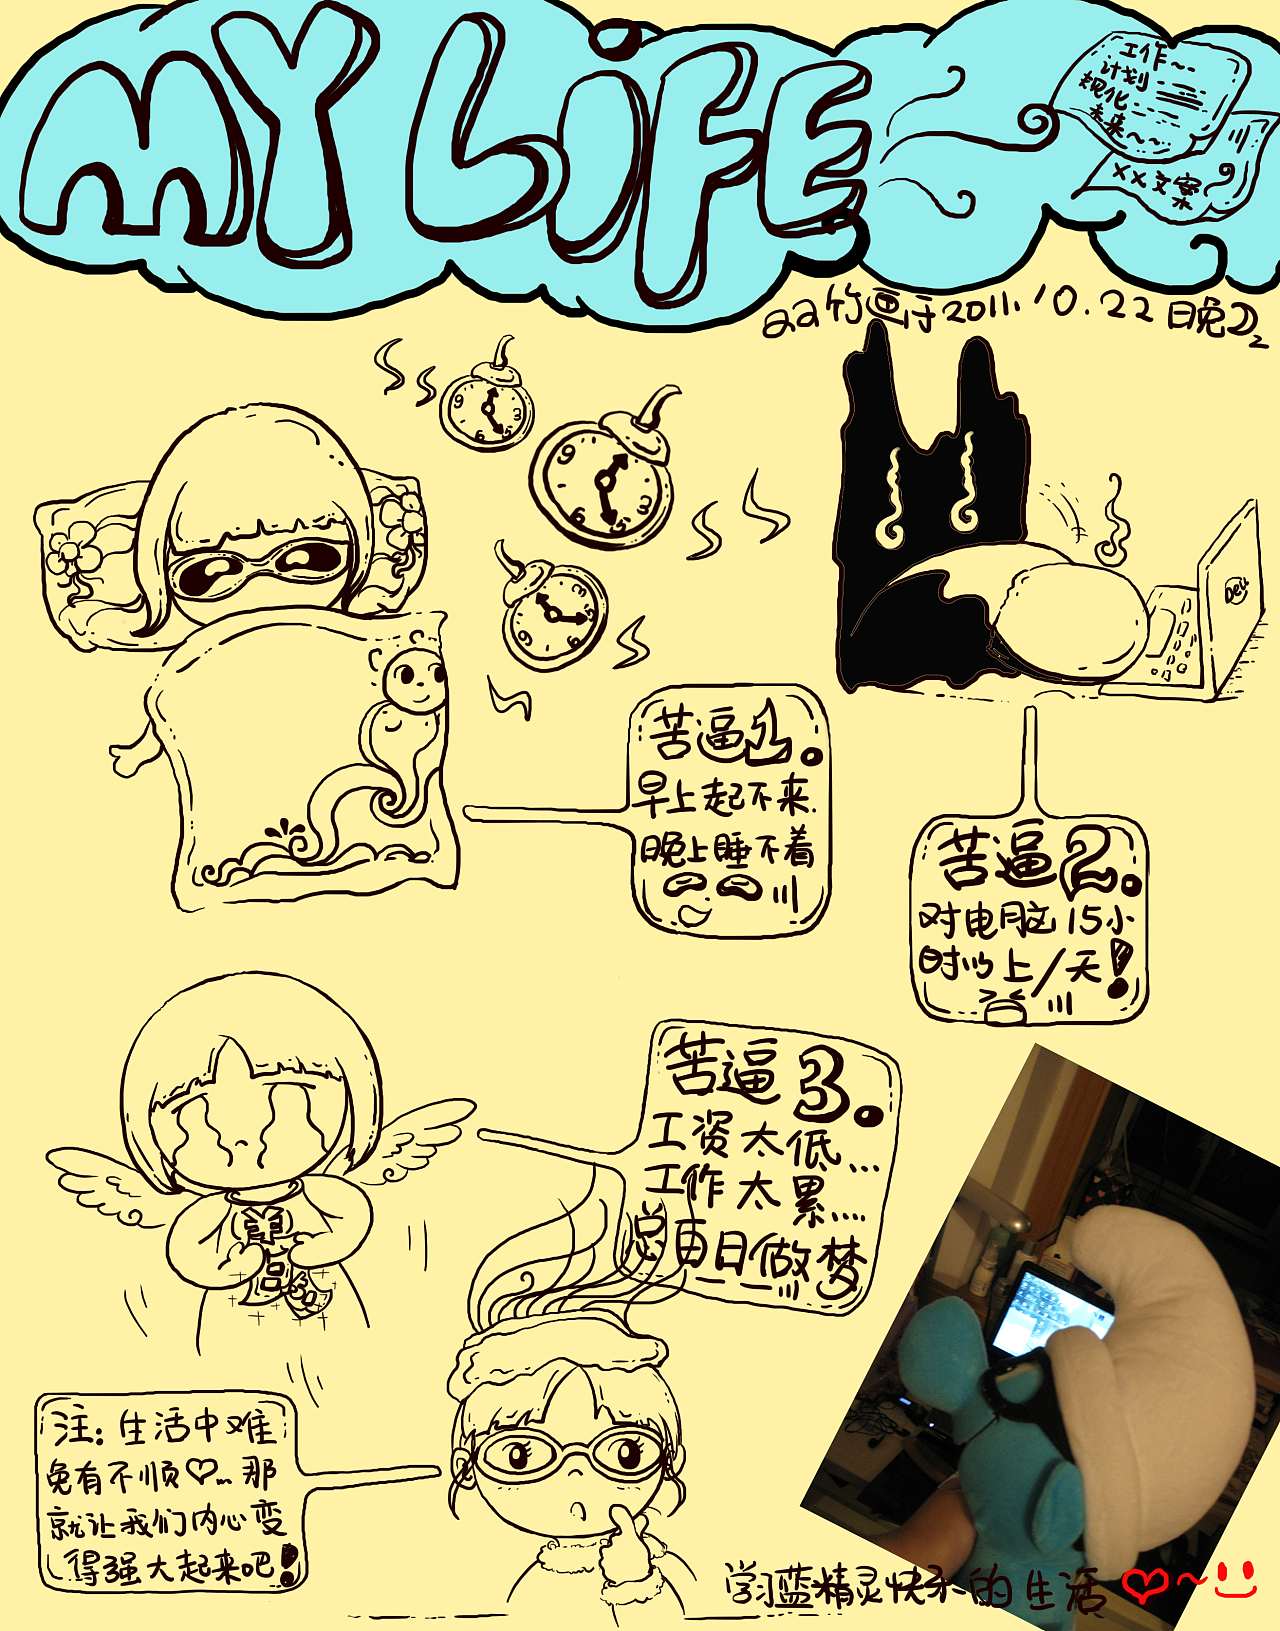 MY LiFE
工作~--
计划
规化
未来~~
××文案
aa竹画于2011.10.22日晚
9
3
6
5
9
6
5
3
9
6
苦逼1.
早上起不来.
晚上睡不着
Dell
苦逼2.
对电脑15小
时以上/天!
苦逼3.
工资太低...
工作太累....
总更日做梦
注:生活中难
免有不顺♡...那
就让我们内心变
得强大起来吧!
学习蓝精灵快乐的生活♡~